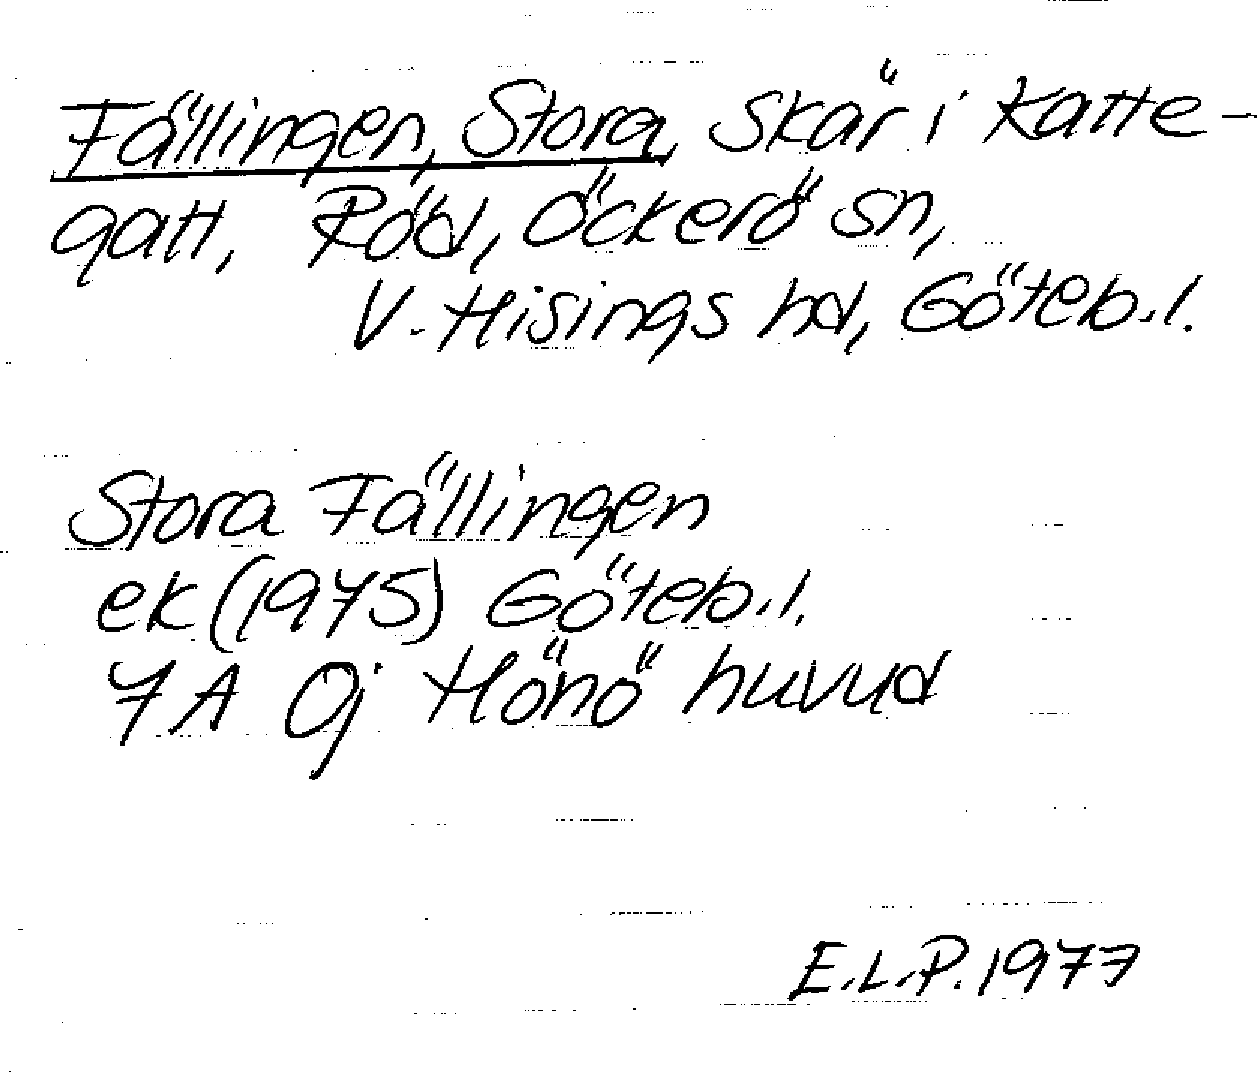 Fällingen, Stora, skär i Katte-
gatt, Röd, Öckerö sn,
V. Hisings hd, Göteb.l.
Stora Fällingen
ek (1975) Göteb.l.
7 A 0j Hönö huvud
E.L.P. 1977